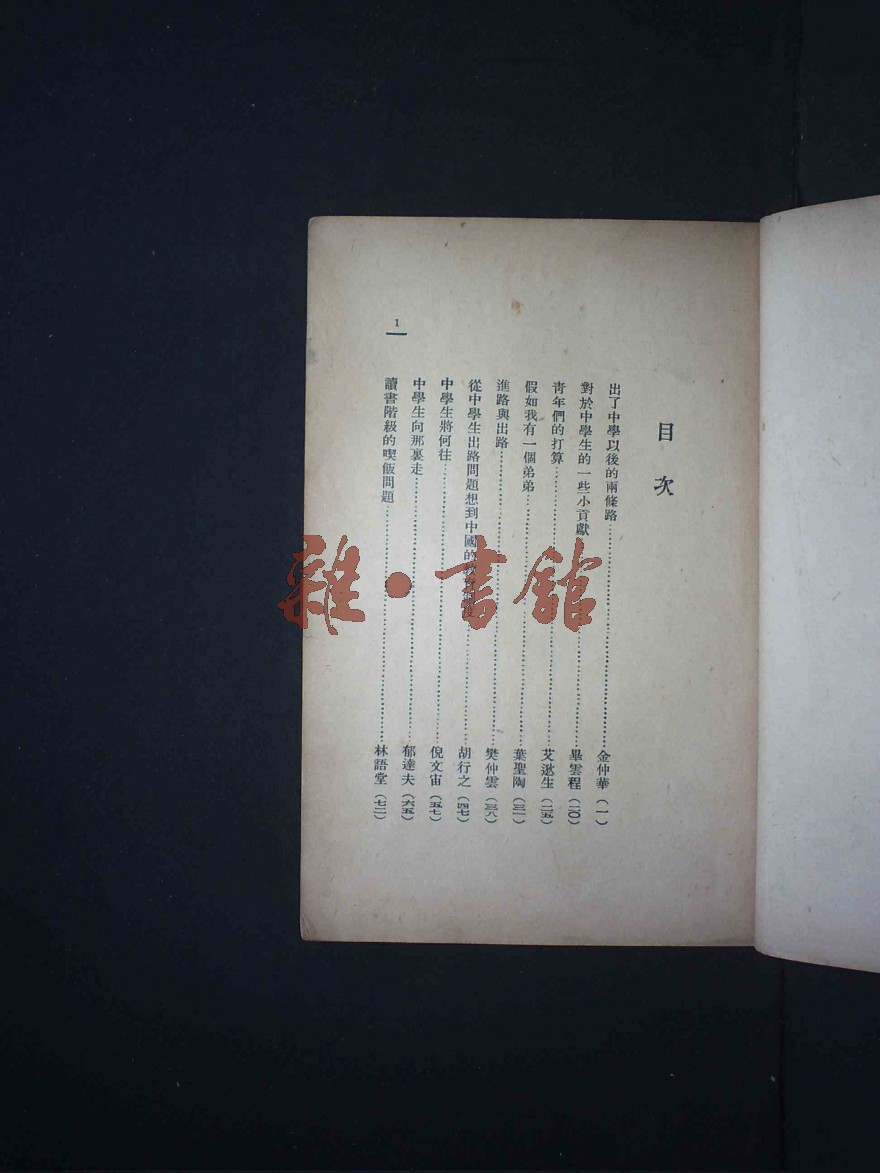 目次
出了中學以後的兩條路……金仲華(一)
對於中學生的一些小貢獻……畢雲程(二〇)
青年們的打算……艾逖生(二五)
假如我有一個弟弟……葉聖陶(三一)
進路與出路……樊仲雲(三八)
從中學生出路問題想到中國的……胡行之(四七)
中學生將何往……倪文宙(五七)
中學生向那裏走……郁達夫(六五)
讀書階級的喫飯問題……林語堂(七二)
1
雜·書館